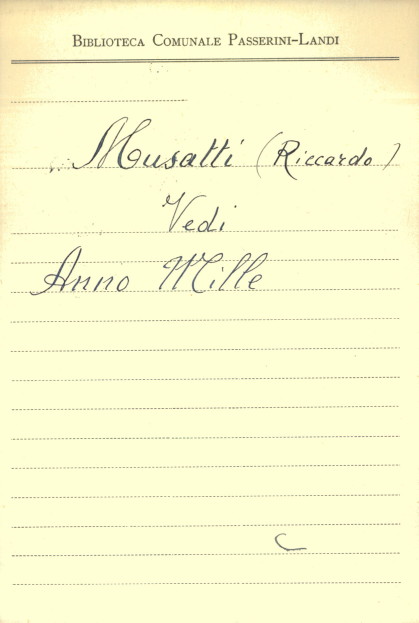 Biblioteca Comunale Passerini-Landi
Musatti (Riccardo)
Vedi
Anno Mille